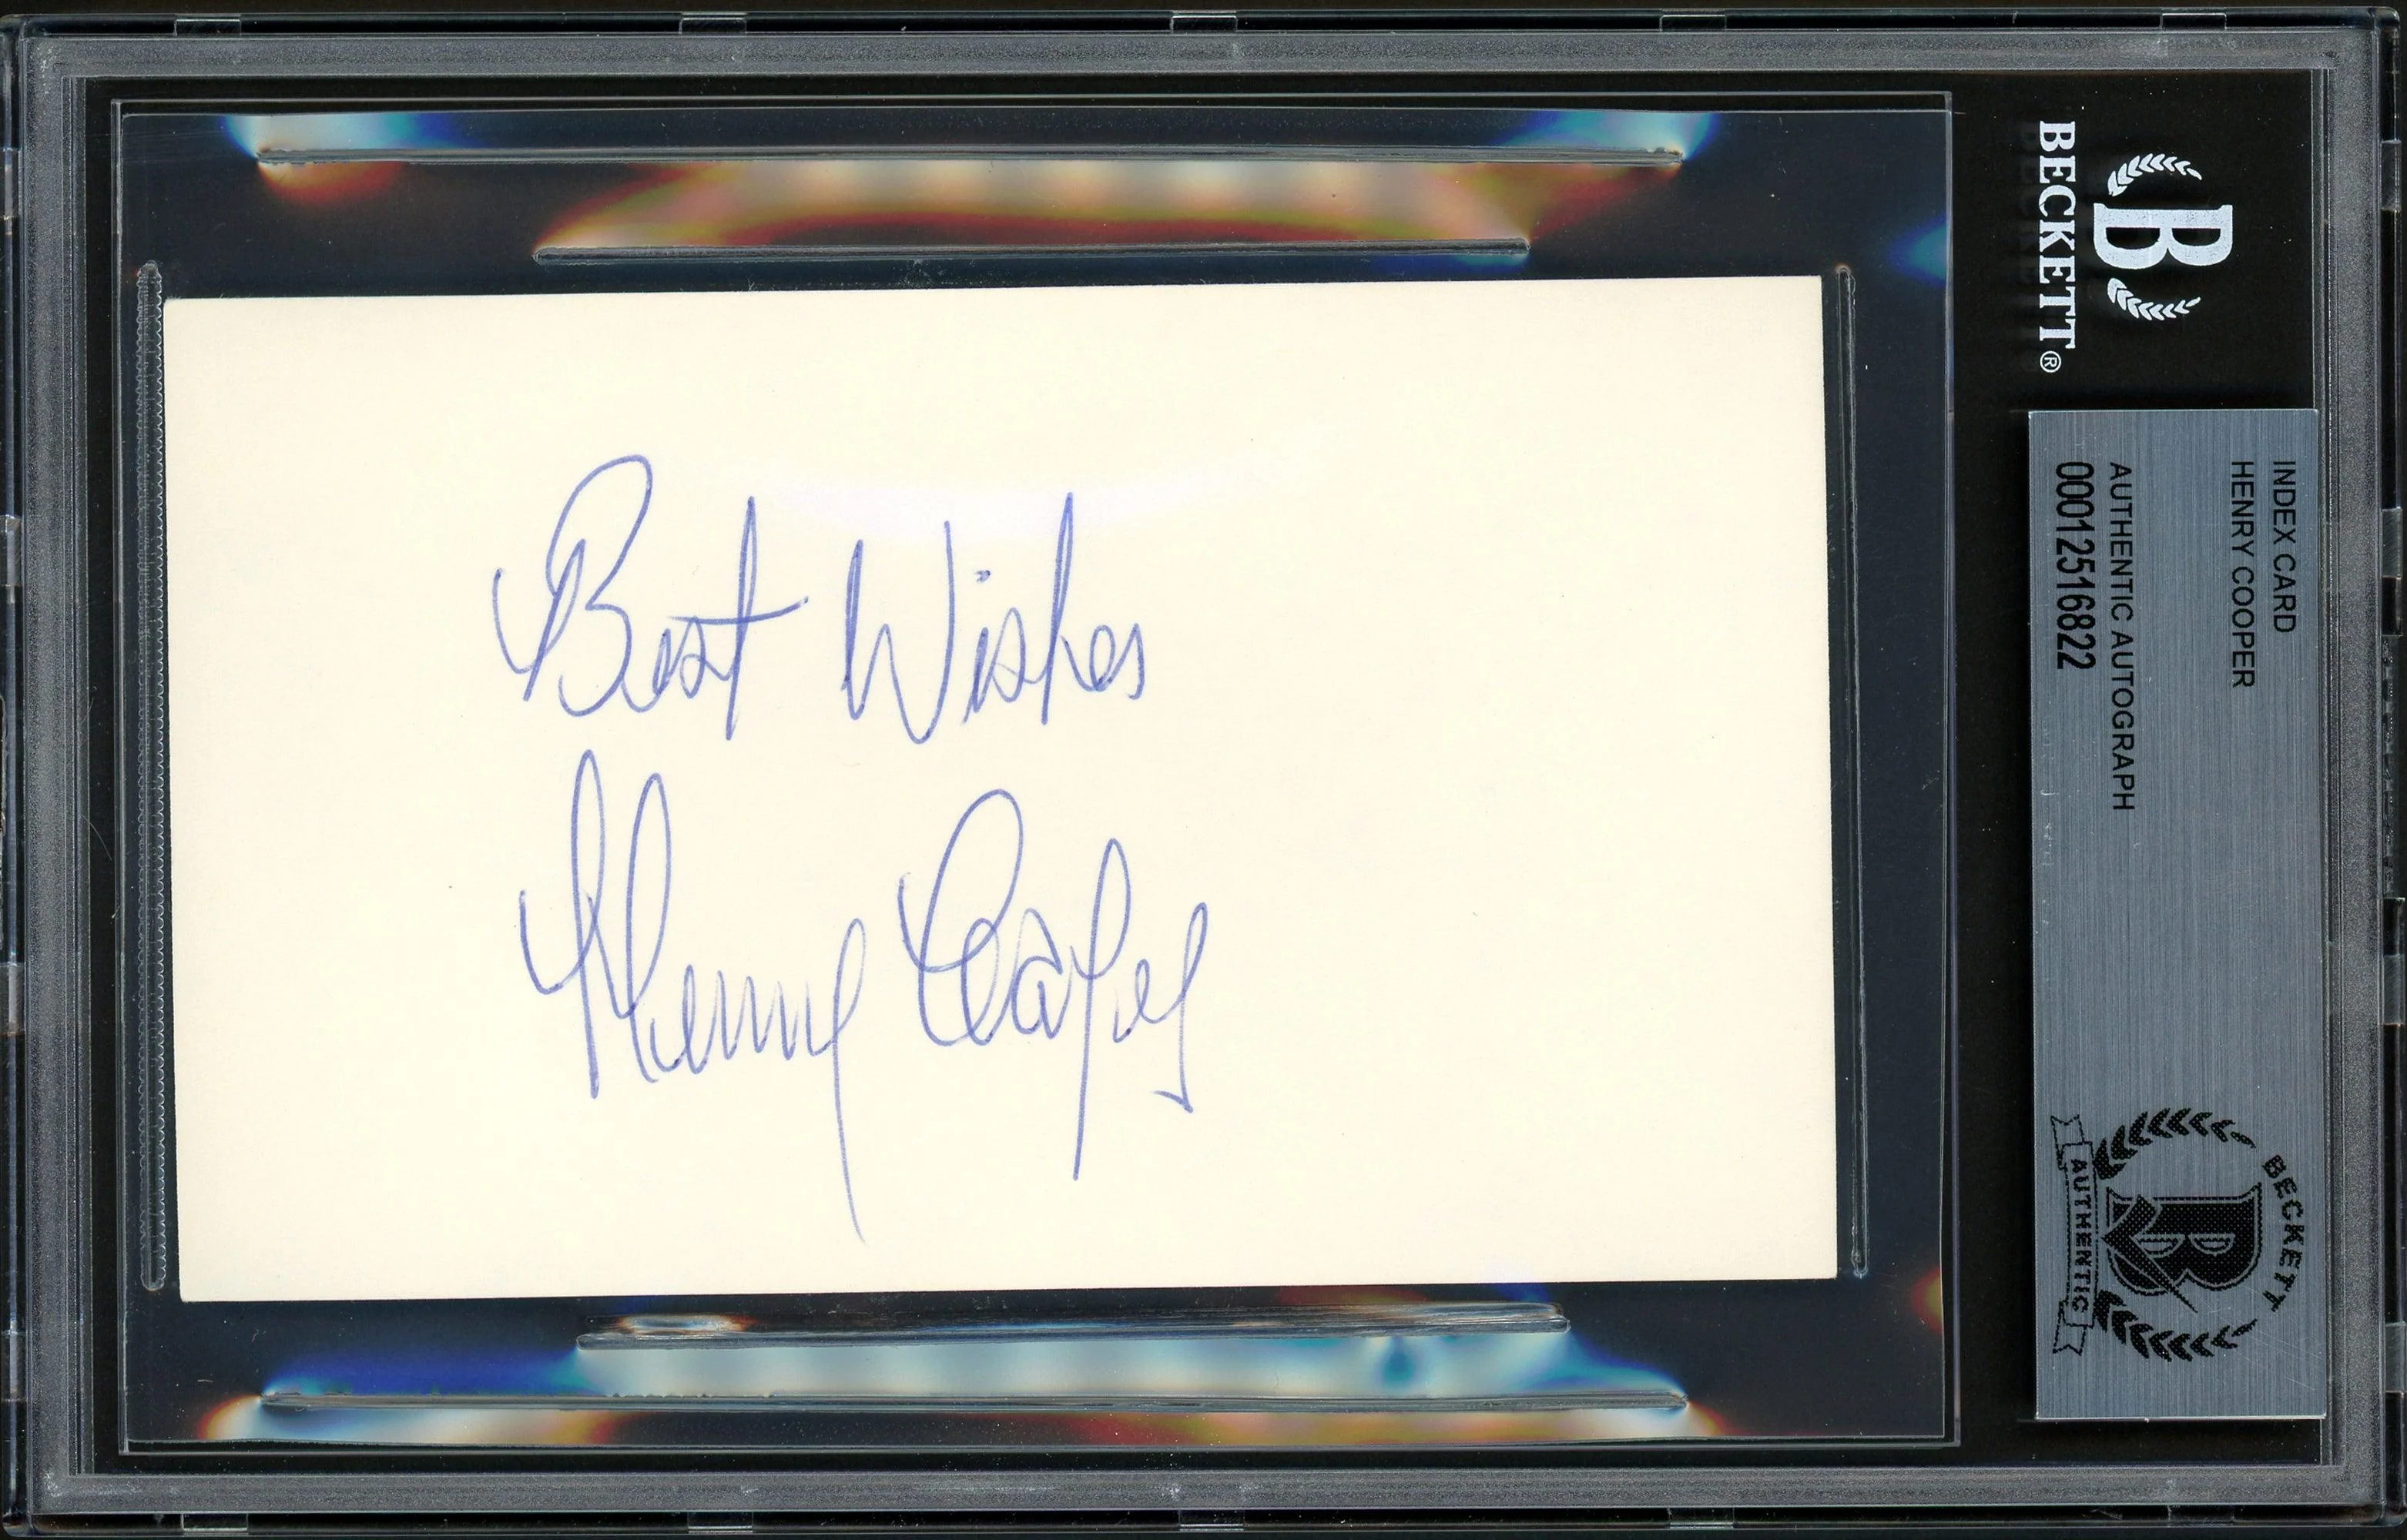 Best Wishes
Henry Cooper
BECKETT®
INDEX CARD
HENRY COOPER
AUTHENTIC AUTOGRAPH
00012516822
BECKETT
AUTHENTIC